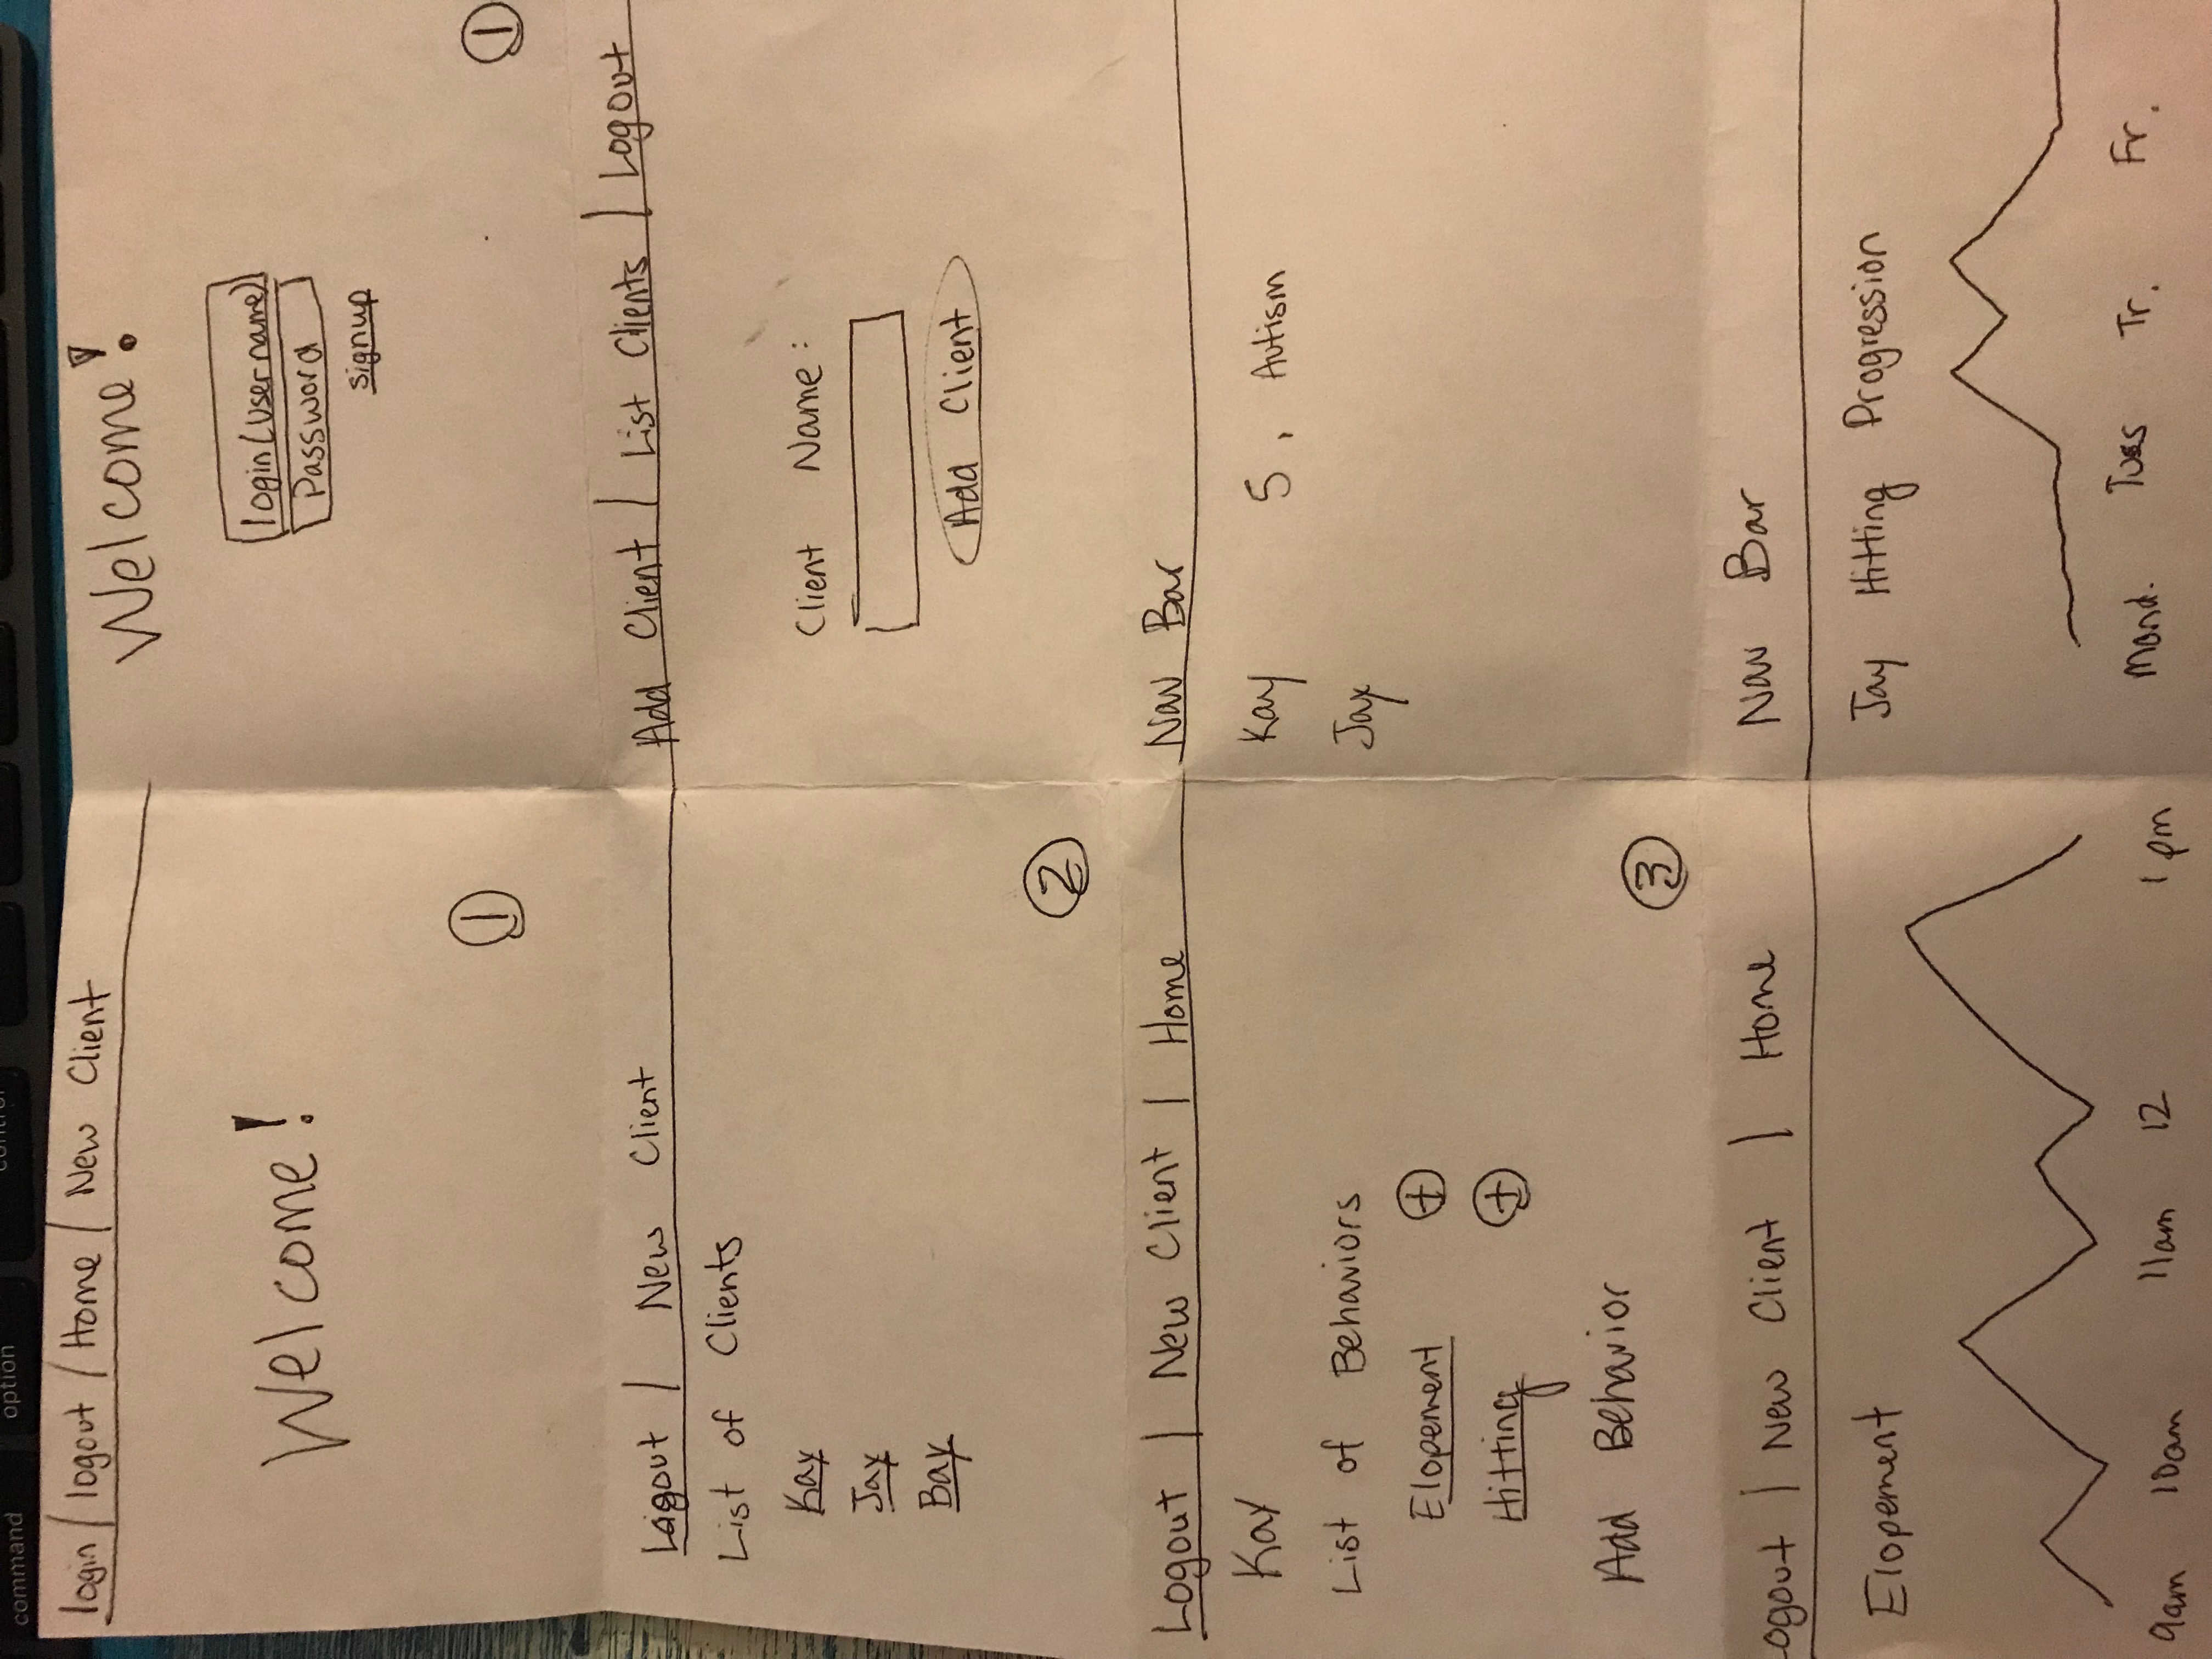 command option control
login / logout / Home / New Client
Welcome!
1
Welcome!
login (username)
Password
signup
1
Logout | New Client
List of Clients
Kay
Jay
Bay
2
Add Client | List Clients | Logout
Client Name:
Add Client
Logout | New Client | Home
Kay
List of Behaviors
Elopement +
Hitting +
Add Behavior
3
Nav Bar
Kay 5, Autism
Jay
Logout | New Client | Home
Elopement
9am 10am 11am 12 1pm
Nav Bar
Jay Hitting Progression
Mond. Tues Tr. Fr.